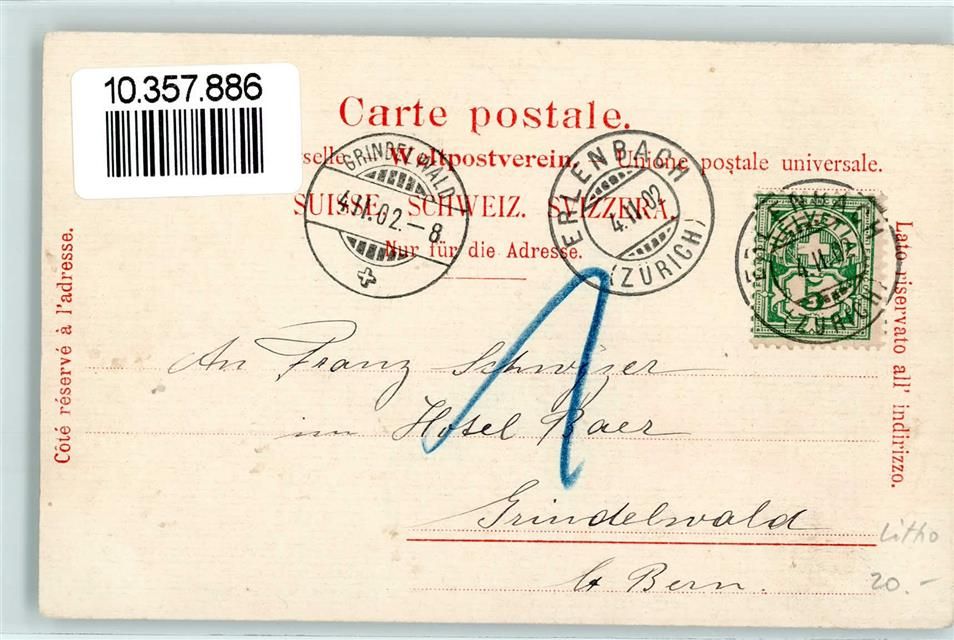 10.357.886
Carte postale.
Weltpostverein. Unione postale universale.
SUISSE. SCHWEIZ. SVIZZERA.
Nur für die Adresse.
GRINDELWALD
4.II.02.-8
ERLENBACH
4.II.02
(ZÜRICH)
HELVETIA
5
(ZÜRICH)
Côté réservé à l'adresse.
Lato riservato all' indirizzo.
An Franz Schwyzer
im Hotel Baer
Grindelwald
Ct Bern.
1
Litho
20.-